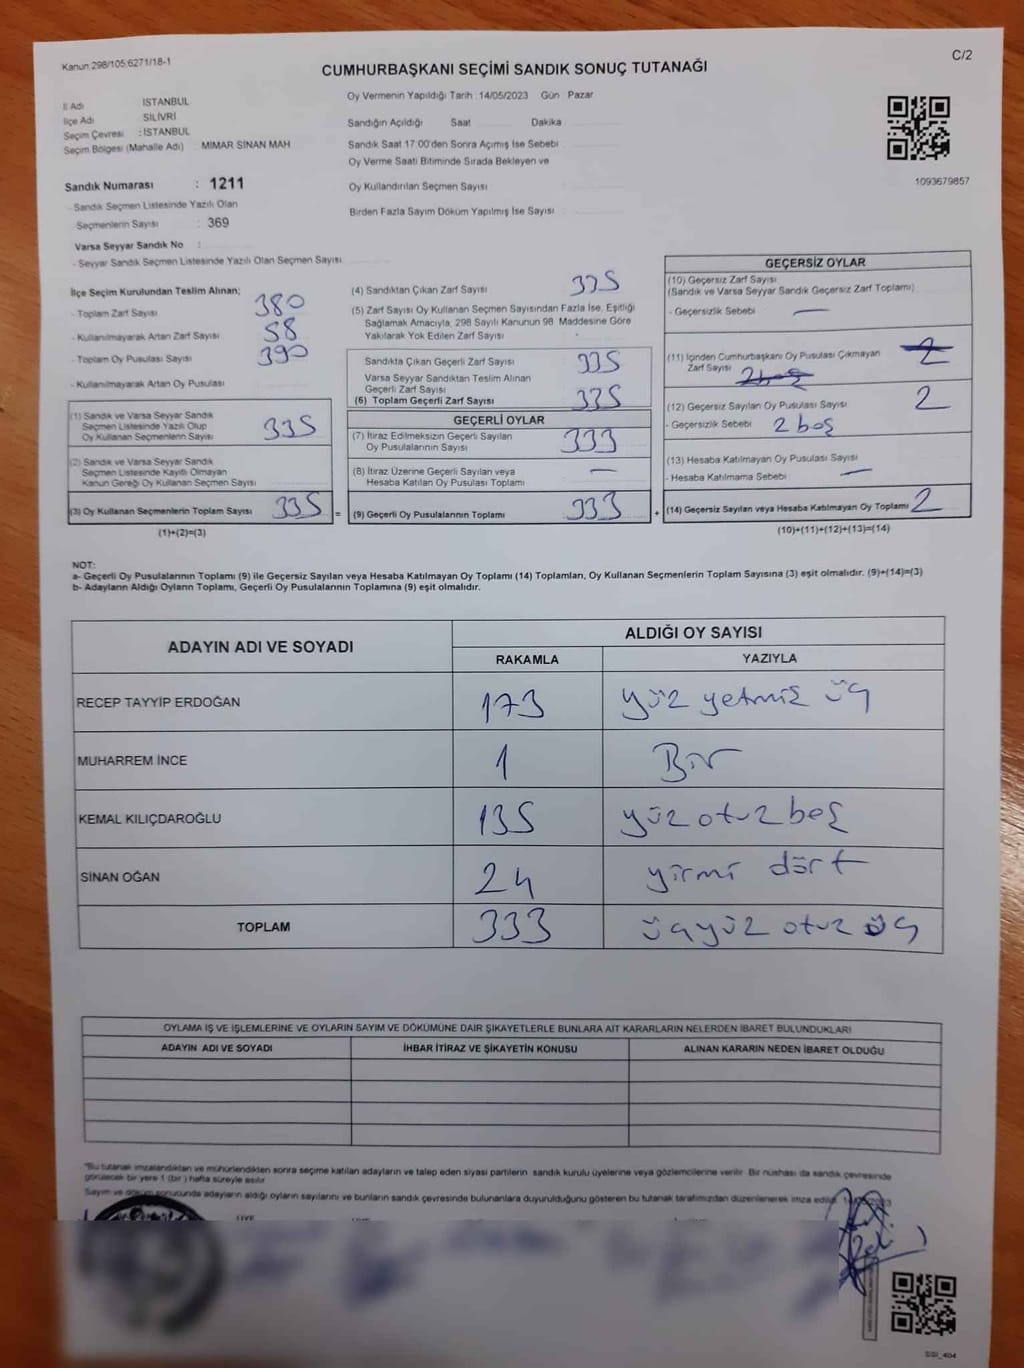 Kanun 298/105;6271/18-1
C/2
CUMHURBAŞKANI SEÇİMİ SANDIK SONUÇ TUTANAĞI
İl Adı ISTANBUL
İlçe Adı SİLİVRİ
Seçim Çevresi : ISTANBUL
Seçim Bölgesi (Mahalle Adı) MIMAR SINAN MAH
Sandık Numarası : 1211
- Sandık Seçmen Listesinde Yazılı Olan
Seçmenlerin Sayısı : 369
Varsa Seyyar Sandık No :
- Seyyar Sandık Seçmen Listesinde Yazılı Olan Seçmen Sayısı
Oy Vermenin Yapıldığı Tarih : 14/05/2023 Gün Pazar
Sandığın Açıldığı Saat Dakika
Sandık Saat 17:00'den Sonra Açımış İse Sebebi
Oy Verme Saati Bitiminde Sırada Bekleyen ve
Oy Kullandırılan Seçmen Sayısı
Birden Fazla Sayım Döküm Yapılmış İse Sayısı
1093679857
İlçe Seçim Kurulundan Teslim Alınan;
- Toplam Zarf Sayısı 380
- Kullanılmayarak Artan Zarf Sayısı 58
- Toplam Oy Pusulası Sayısı 390
- Kullanılmayarak Artan Oy Pusulası
(1) Sandık ve Varsa Seyyar Sandık
Seçmen Listesinde Yazılı Olup
Oy Kullanan Seçmenlerin Sayısı 335
(2) Sandık ve Varsa Seyyar Sandık
Seçmen Listesinde Kayıtlı Olmayan
Kanun Gereği Oy Kullanan Seçmen Sayısı
(3) Oy Kullanan Seçmenlerin Toplam Sayısı 335 =
(1)+(2)=(3)
(4) Sandıktan Çıkan Zarf Sayısı 335
(5) Zarf Sayısı Oy Kullanan Seçmen Sayısından Fazla İse, Eşitliği
Sağlamak Amacıyla, 298 Sayılı Kanunun 98. Maddesine Göre
Yakılarak Yok Edilen Zarf Sayısı
Sandıkta Çıkan Geçerli Zarf Sayısı 335
Varsa Seyyar Sandıktan Teslim Alınan
Geçerli Zarf Sayısı
(6) Toplam Geçerli Zarf Sayısı 335
GEÇERLİ OYLAR
(7) İtiraz Edilmeksizin Geçerli Sayılan
Oy Pusulalarının Sayısı 333
(8) İtiraz Üzerine Geçerli Sayılan veya
Hesaba Katılan Oy Pusulası Toplamı —
(9) Geçerli Oy Pusulalarının Toplamı 333 +
GEÇERSİZ OYLAR
(10) Geçersiz Zarf Sayısı
(Sandık ve Varsa Seyyar Sandık Geçersiz Zarf Toplamı)
- Geçersizlik Sebebi —
(11) İçinden Cumhurbaşkanı Oy Pusulası Çıkmayan 2
Zarf Sayısı 2 boş
(12) Geçersiz Sayılan Oy Pusulası Sayısı 2
- Geçersizlik Sebebi 2 boş
(13) Hesaba Katılmayan Oy Pusulası Sayısı
- Hesaba Katılmama Sebebi —
(14) Geçersiz Sayılan veya Hesaba Katılmayan Oy Toplamı 2
(10)+(11)+(12)+(13)=(14)
NOT:
a- Geçerli Oy Pusulalarının Toplamı (9) ile Geçersiz Sayılan veya Hesaba Katılmayan Oy Toplamı (14) Toplamları, Oy Kullanan Seçmenlerin Toplam Sayısına (3) eşit olmalıdır. (9)+(14)=(3)
b- Adayların Aldığı Oyların Toplamı, Geçerli Oy Pusulalarının Toplamına (9) eşit olmalıdır.
ADAYIN ADI VE SOYADI ALDIĞI OY SAYISI
RAKAMLA YAZIYLA
RECEP TAYYİP ERDOĞAN 173 yüz yetmiş üç
MUHARREM İNCE 1 Bir
KEMAL KILIÇDAROĞLU 135 yüz otuz beş
SİNAN OĞAN 24 yirmi dört
TOPLAM 333 üçyüz otuz üç
OYLAMA İŞ VE İŞLEMLERİNE VE OYLARIN SAYIM VE DÖKÜMÜNE DAİR ŞİKAYETLERLE BUNLARA AİT KARARLARIN NELERDEN İBARET BULUNDUKLARI
ADAYIN ADI VE SOYADI İHBAR İTİRAZ VE ŞİKAYETİN KONUSU ALINAN KARARIN NEDEN İBARET OLDUĞU
"Bu tutanak imzalandıktan ve mühürlendikten sonra seçime katılan adayların ve talep eden siyasi partilerin sandık kurulu üyelerine veya gözlemcilerine verilir. Bir nüshası da sandık çevresinde
görülecek bir yere 1 (bir) hafta süreyle asılır
Sayım ve döküm sonucunda adayların aldığı oyların sayılarını ve bunların sandık çevresinde bulunanlara duyurulduğunu gösteren bu tutanak tarafımızdan düzenlenerek imza edildi.